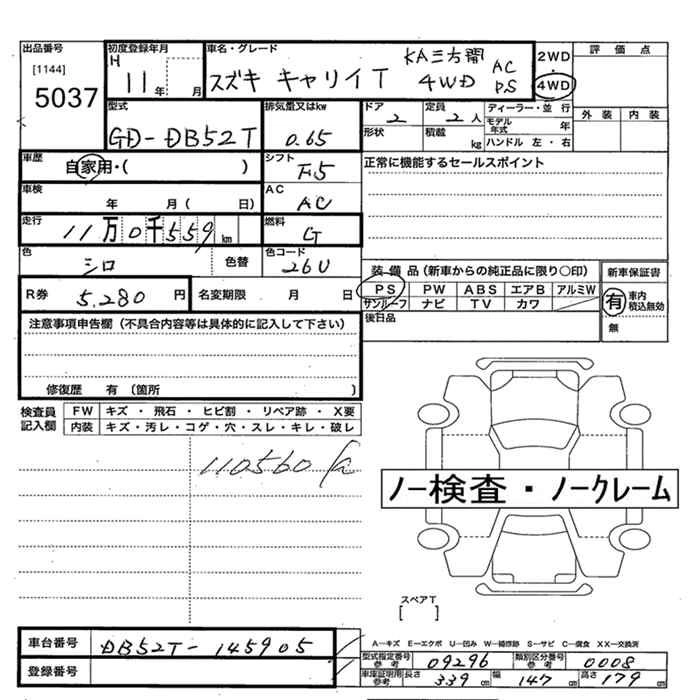 出品番号
[1144]
5037
初度登録年月
H 11 年 月
車名・グレード
スズキ キャリイT KA三方開 4WD AC PS
2WD
・
4WD
評価点
外装 内装
型式
GD-DB52T
排気量又はkw
0.65
ドア
2
定員
2人
ディーラー・並行
モデル年式 年
形状
積載 kg
ハンドル 左・右
車歴
自家用・( )
シフト
F5
正常に機能するセールスポイント
車検
年 月( 日)
AC
AC
走行
11万0千559km
燃料
G
色
シロ
色替
色コード
26U
装備品(新車からの純正品に限り○印)
PS PW ABS エアB アルミW
サンルーフ ナビ TV カワ
新車保証書
有 車内積込無効
無
R券 5,280 円
名変期限 月 日
後日品
注意事項申告欄(不具合内容等は具体的に記入して下さい)
修復歴 有(箇所 )
検査員記入欄
FW キズ・飛石・ヒビ割・リペア跡・X要
内装 キズ・汚レ・コゲ・穴・スレ・キレ・破レ
110560
ノー検査・ノークレーム
スペアT
[ ]
車台番号 DB52T-145905
登録番号
A-キズ E-エクボ U-凹み W-補修跡 S-サビ C-腐食 XX-交換済
型式指定番号 参考 09296 類別区分番号 参考 0008
車庫証明用 参考 長さ 339cm 幅 147cm 高さ 179cm